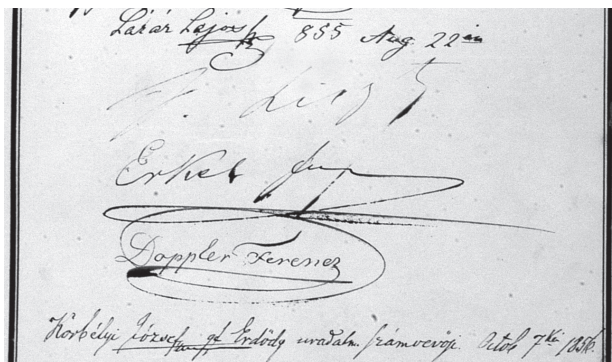 Lázár Lajos 855 Aug 22én
F. Liszt
Erkel
Doppler Ferencz
Körbélyi József gf Erdődy uradalm. számvevője Octob 7kén 1856